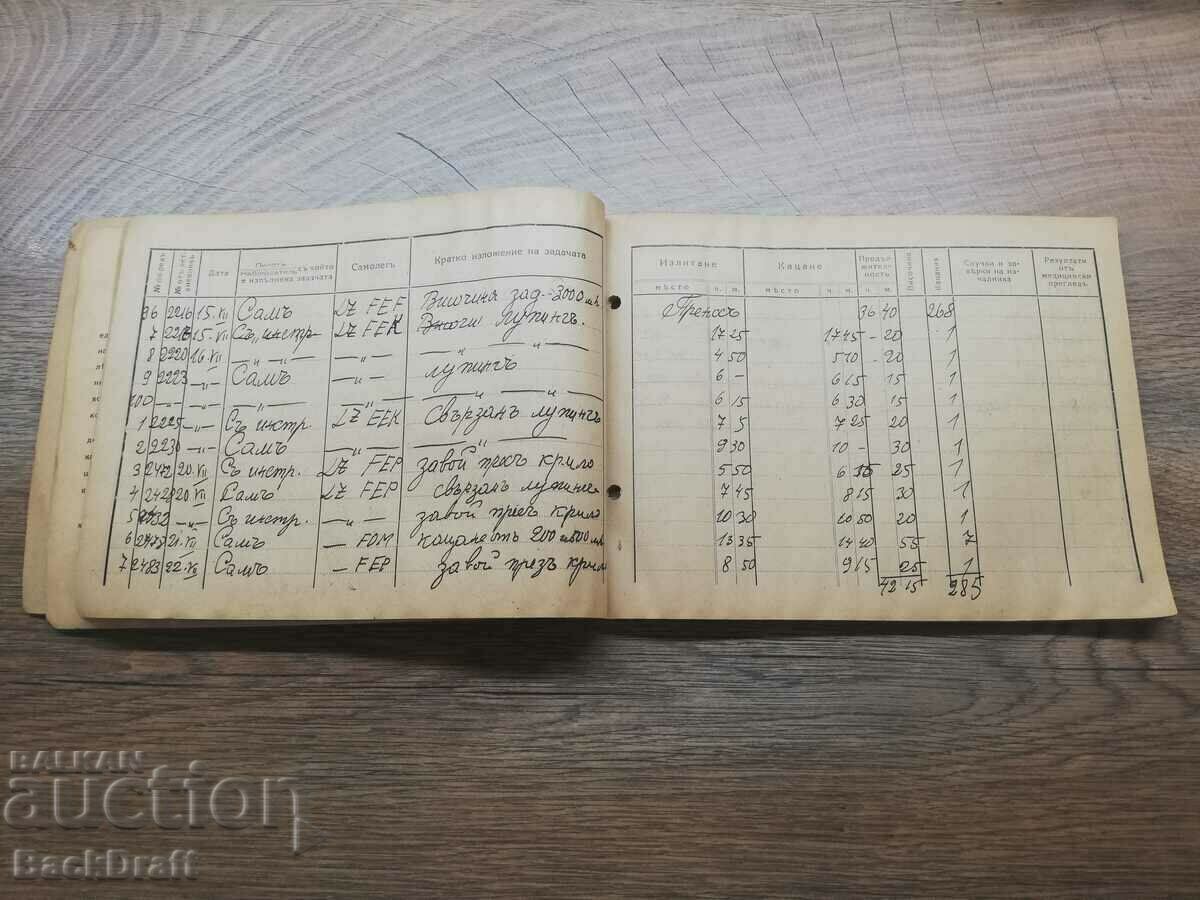 № по редъ № отъ лет. дневникъ Дата Пилотъ Наблюдатель съ който е изпълнена задачата Самолетъ Кратко изложение на задачата
36 2216 15.VII Самъ LZ FEF Височина зад. 3000 м.
7 15.VII Съ инстр. LZ FEK лупингъ.
8 2220 16.VII —„— —„— —„— —„—
9 2223 —„— Самъ —„— лупингъ
100 —„— —„— —„— —„—
1 2225 —„— Съ инстр. LZ EEK Свързанъ лупингъ
2 2230 —„— Самъ —„— —„—
3 2472 20.VII Съ инстр. LZ FEP завой презъ крило
4 2428 20.VII Самъ LZ FEP свързан лупинг
5 —„— Съ инстр. —„— завой презъ крило
6 2475 21.VII Самъ — FOM кацане
7 2483 22.VII Самъ — FEP завой презъ крило
Излитане Кацане Продължителность Височина Кацания Случки и заверки на началника Резултати отъ медицински прегледъ
място ч. м. място ч. м. ч. м.
Преносъ 36 40 268
17 25 17 45 — 20 1
4 50 5 10 — 20 1
6 — 6 15 15 1
6 15 6 30 15 1
7 5 7 25 20 1
9 30 10 — 30 1
5 50 6 15 25 1
7 45 8 15 30 1
10 30 10 50 20 1
13 35 14 40 55 7
8 50 9 15 25 1
42 15 285
BALKAN
auction
BackDraft